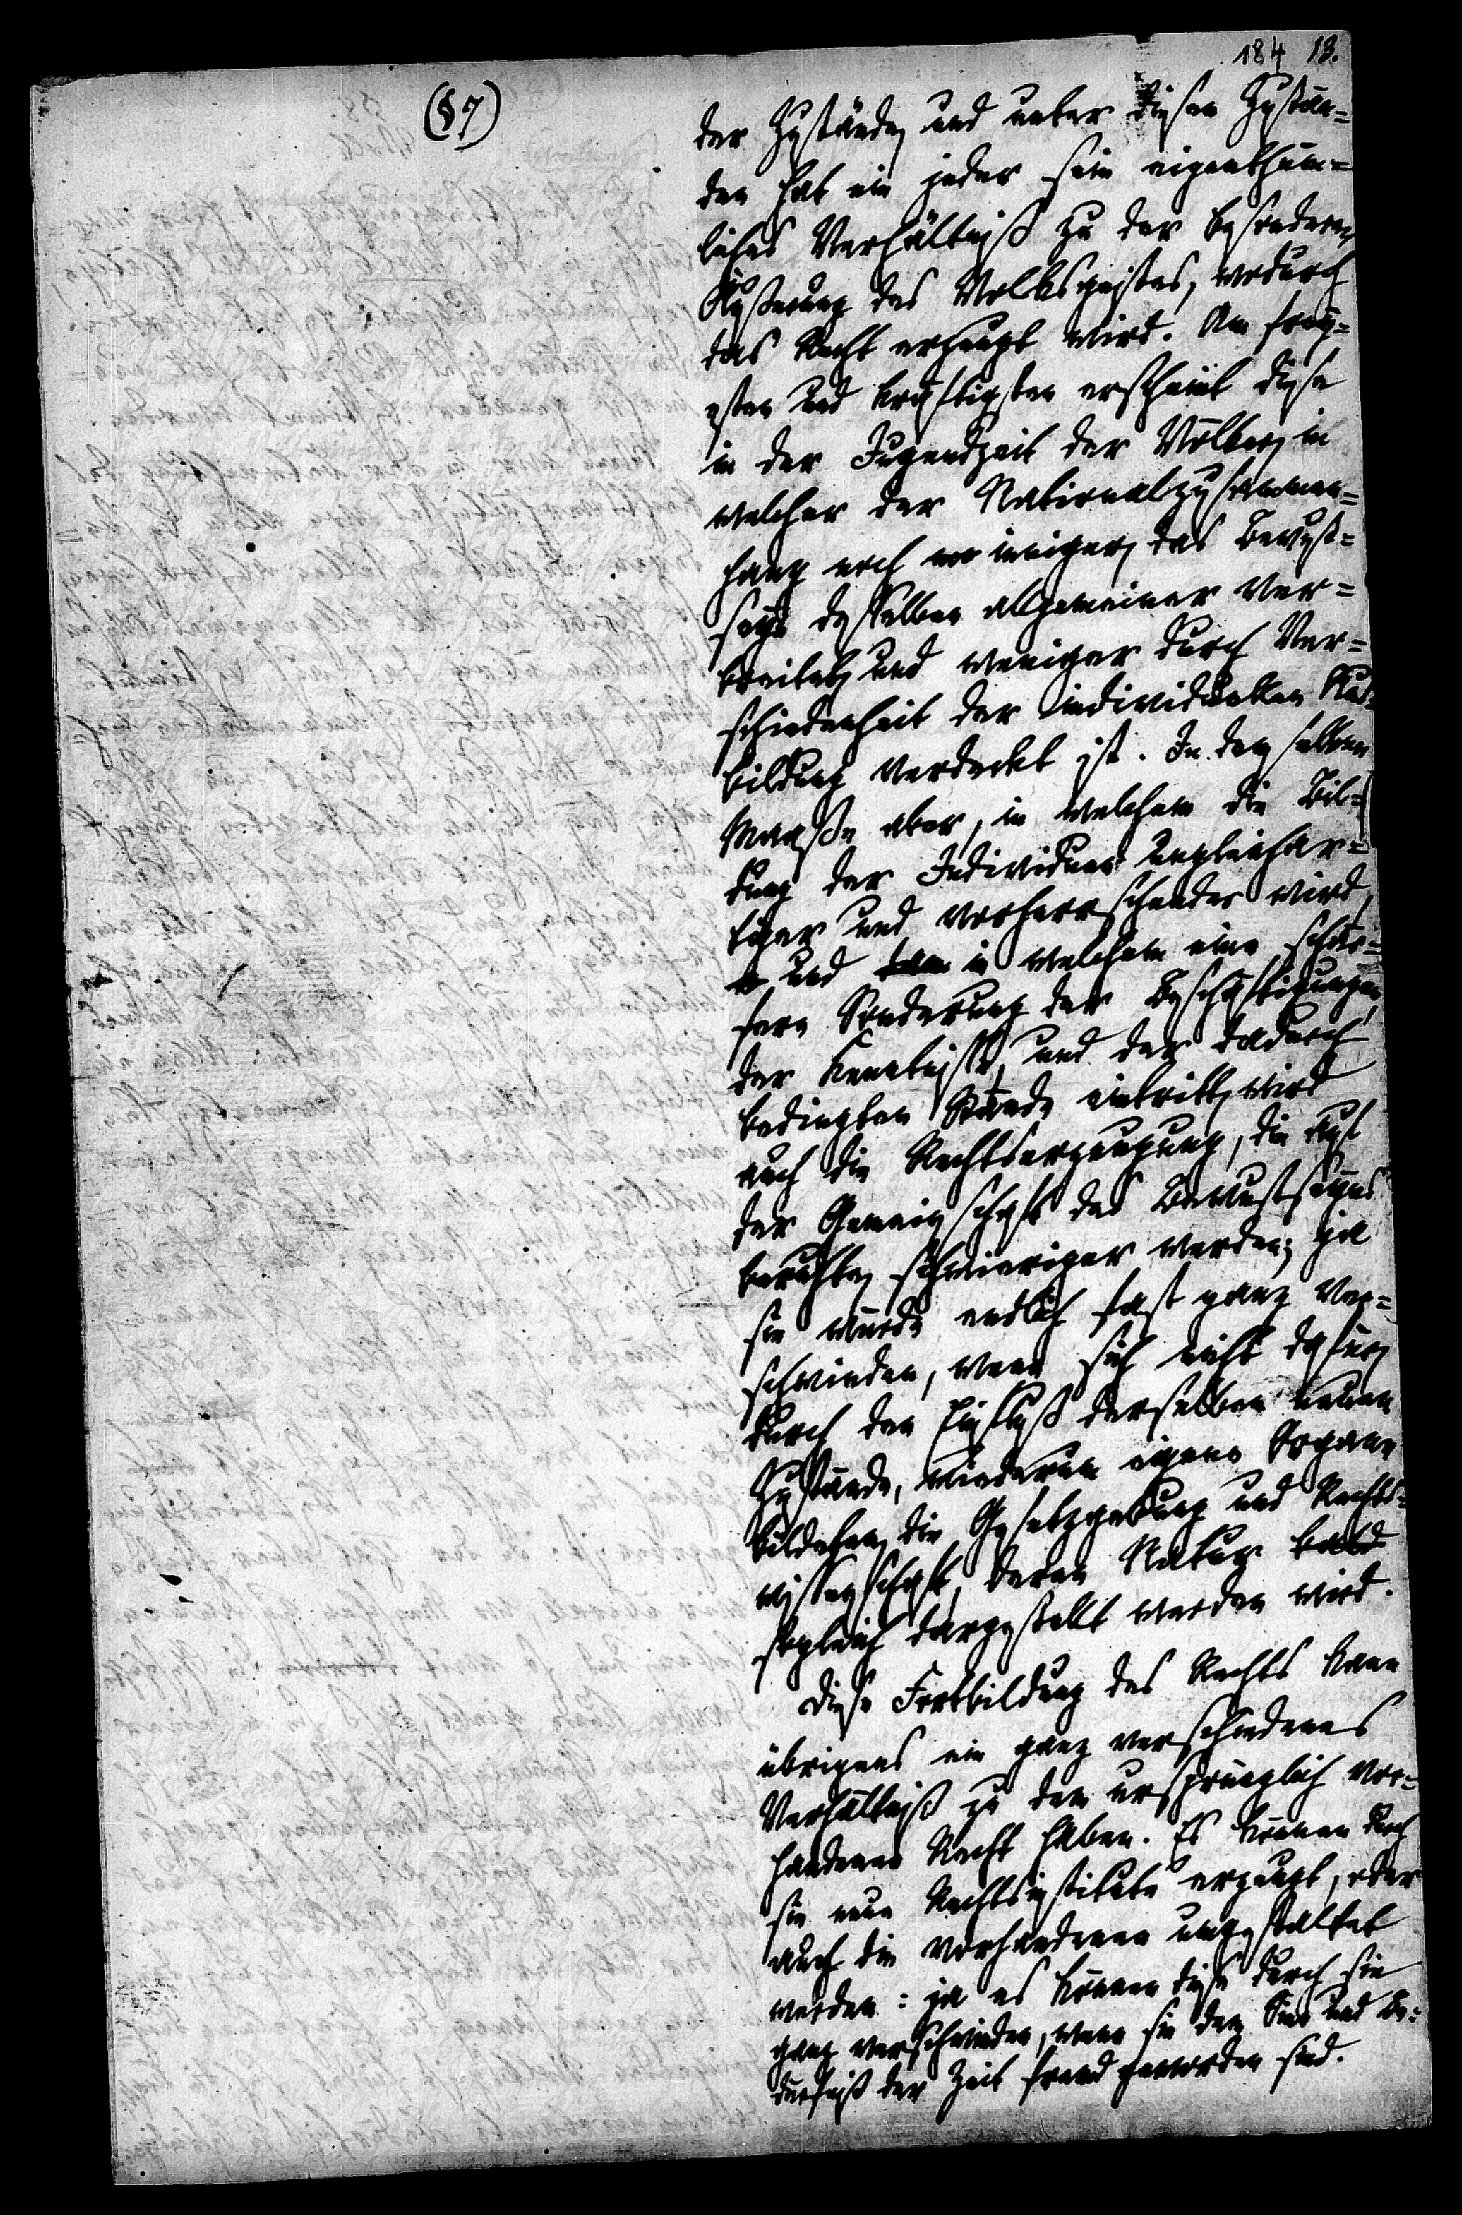 184 13.
(§7)
der Zustände, und unter diesen Zustän=
den hat ein jeder sein eigenthüm=
liches Verhältniß zu der besonderen
Äußerung des Volksgeistes, wodurch
das Recht erzeugt wird. Am frey=
esten und kräftigsten erscheint diese
in der Jugendzeit der Völker, in
welcher der Nationalzusammen=
hang noch inniger, das Bewußt=
seyn desselben allgemeiner ver=
breitet, und weniger durch Ver=
schiedenheit der individuellen Aus=
bildung verdeckt ist. In demselben
Maaße aber, in welchem die Bil=
dung der Individuen ungleichar=
tiger und vorherrschender wird,
und in welchem eine schär=
fere Sonderung der Beschäftigungen,
der Kenntnisse, und der dadurch
bedingten Stände eintritt, wird
auch die Rechtserzeugung, die auf
der Gemeinschaft des Bewustseyns
beruhte, schwieriger werden; ja
sie würde endlich fast ganz ver=
schwinden, wenn sich nicht dafür,
durch den Einfluß derselben neuen
Zustände, wiederum eigene Organe
bildeten, die Gesetzgebung und Rechts=
wissenschaft, deren Natur bald
sogleich dargestellt werden wird.
Diese Fortbildung des Rechts kann
übrigens ein ganz verschiedenes
Verhältniß zu dem ursprünglich vor=
handenen Recht haben. Es können durch
sie neue Rechtsinstitute erzeugt, oder
auch die vorhandenen umgestaltet
werden: ja es können diese durch sie
ganz verschwinden, wenn sie dem Sinn und Be=
dürfniß der Zeit fremd geworden sind.